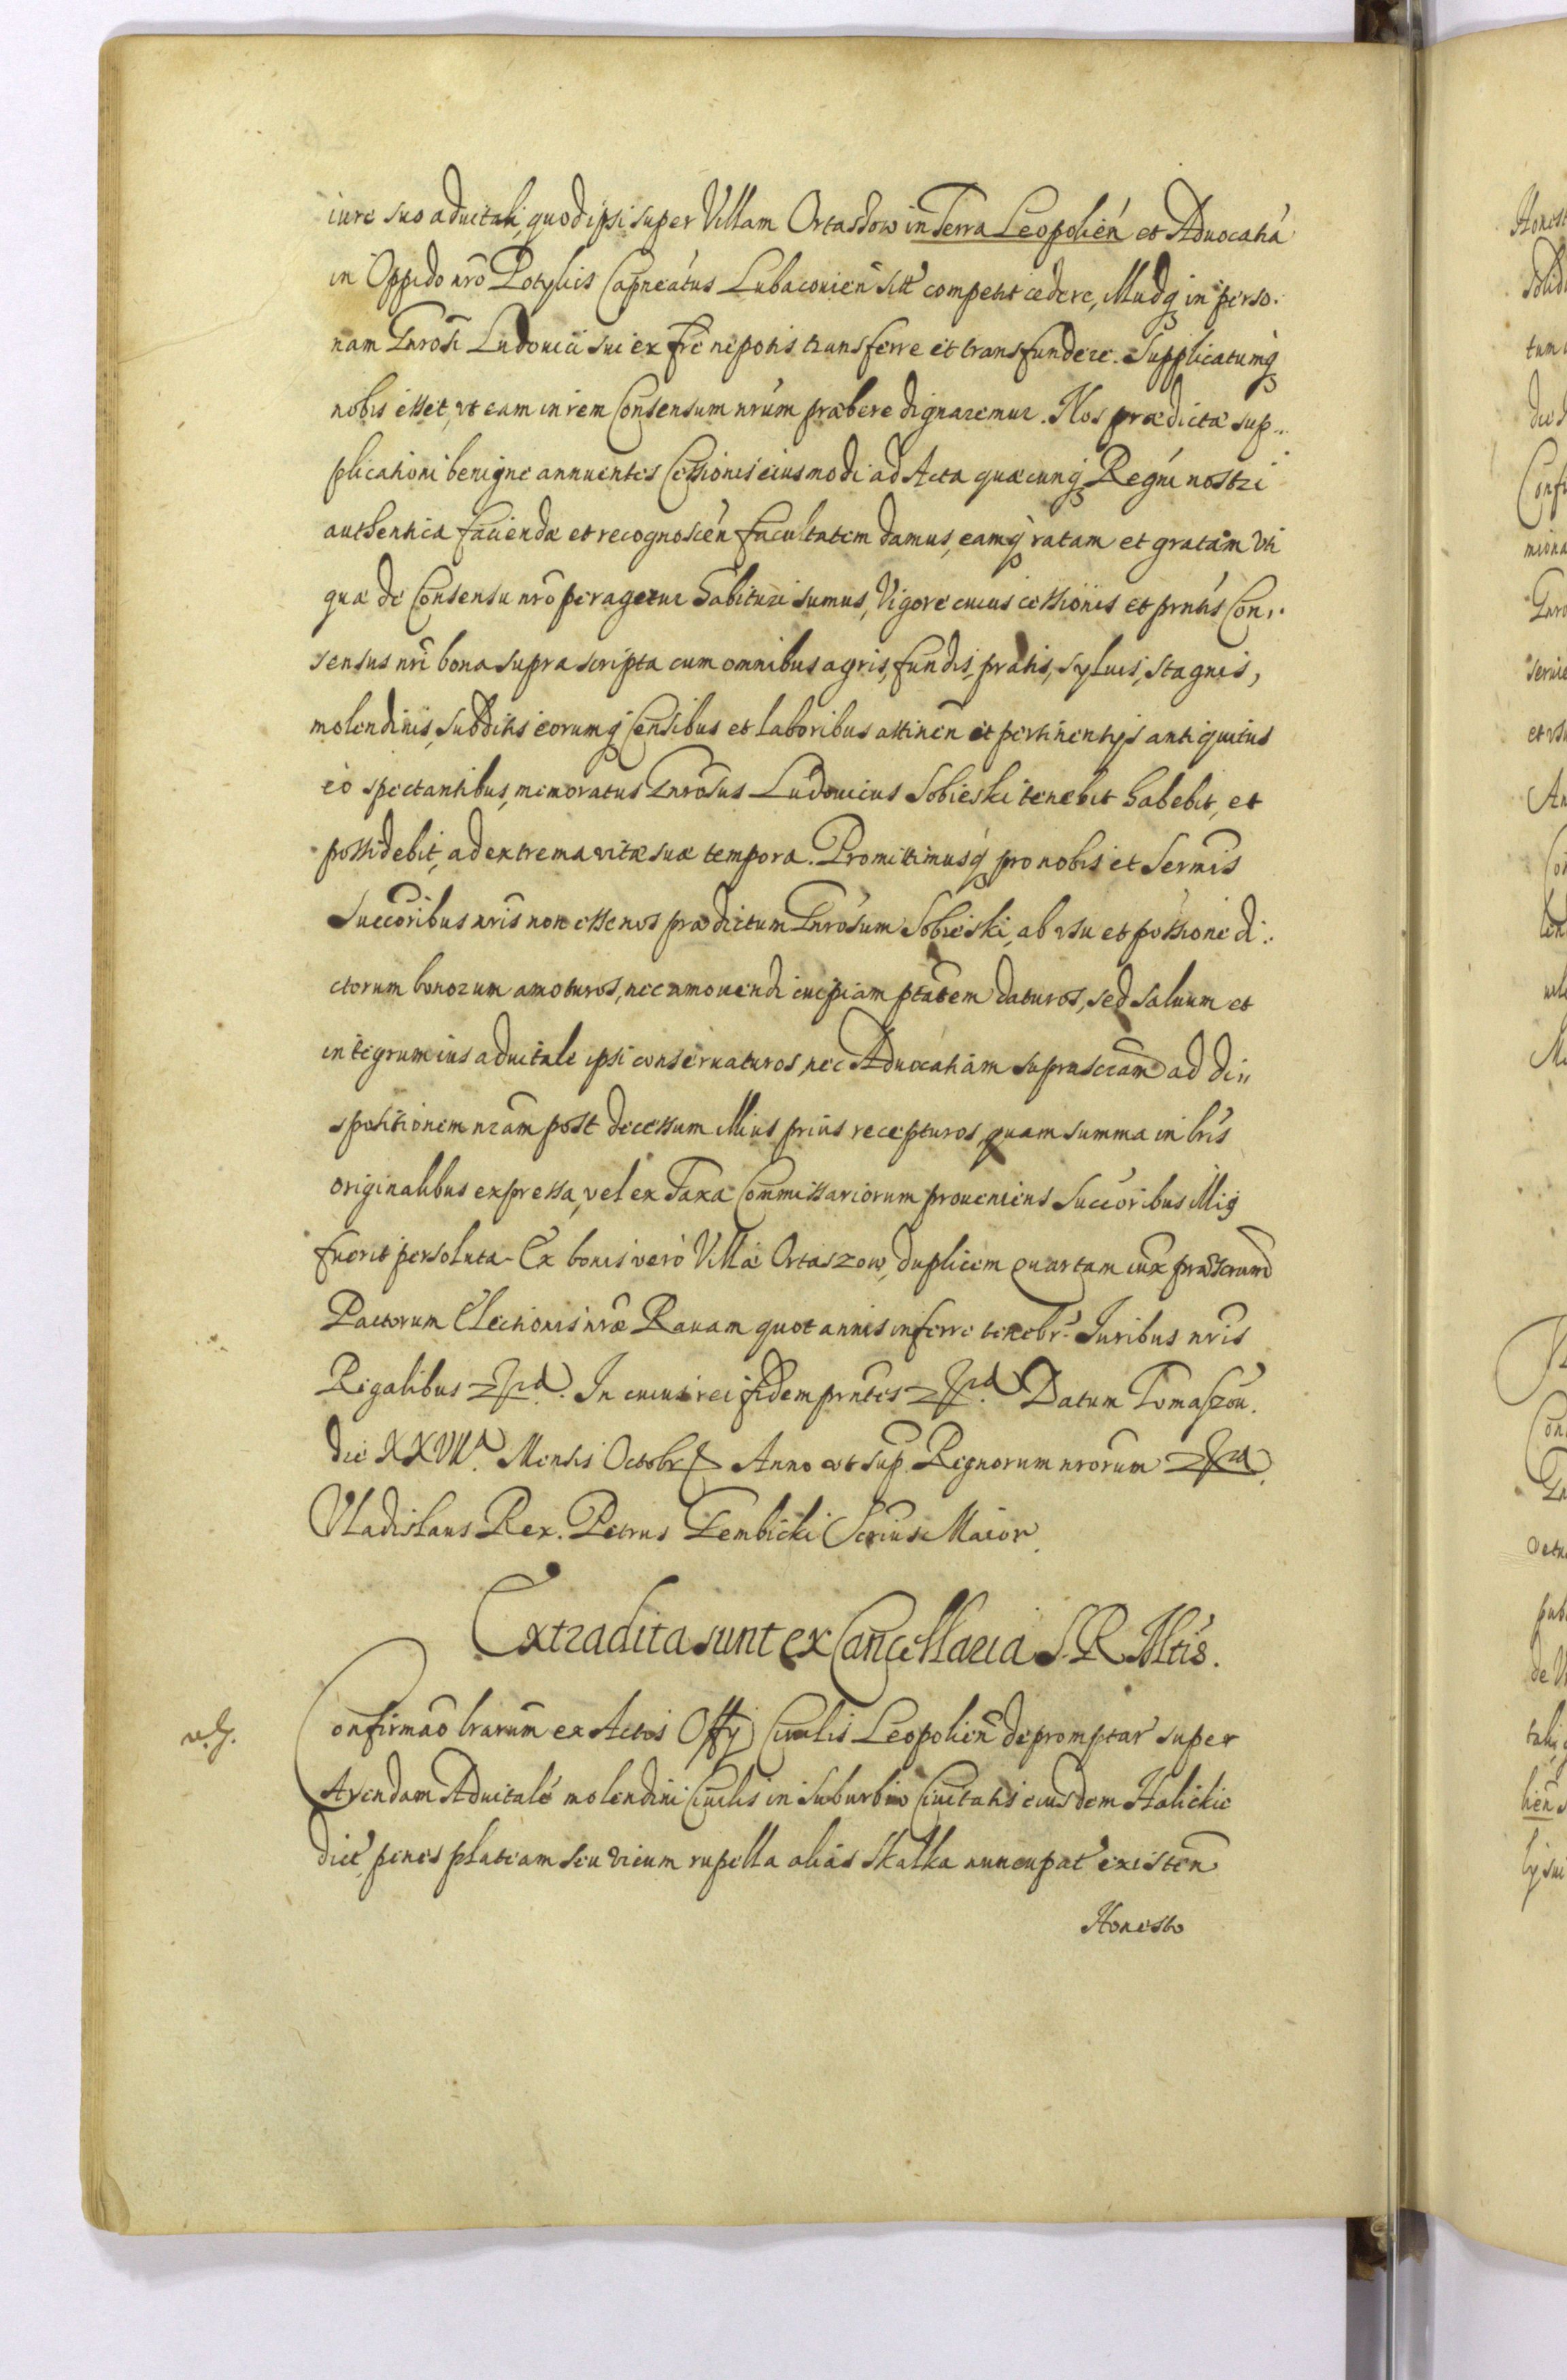 iure suo aduitali, quod ipsi super Villam Ortaszow in Terra Leopolień et Aduocatiá
in Oppido nrõ Potylicis Capneátus Lubaconień sitt competit cedere, illudq in perso.
nam Gnrosi Ludouici sui ex fre nepotis transferre et transfundere. Supplicatumq
nobis esset, vt eam in rem Consensum nrum præbere dignaremur. Nos prædictæ sup..
plicationi benigne annuentes Cessionis eiusmodi ad Acta quæcunq Regni nostri
authentica faciendæ et recognoscén facultatem damus, eamq ratam et gratam vti
quæ de Consensu nrõ peragetur habituri sumus, Vigore cuius cessionis et prntis Con..
sensus nri bona suprascripta cum omnibus agris, fundis, pratis, syluis, stagnis,
molendinis, subditis eorumq Censibus et laboribus attinen et pertinentijs antiquitus
eò spectantibus, memoratus Gnrosus Ludouicus Sobieski tenebit habebit, et
possidebit, ad extrema vitæ suæ tempora. Promittimusq pro nobis et Sermis
Succoribus nris non esse nos prædictum Gnrosum Sobieski, ab vsu et possione di..
ctorum bonorum amoturos, nec amouendi cuipiam ptatem daturos, sed saluum et
integrum ius aduitale ipsi conseruaturos, nec Aduocatiam suprascram ad di..
spositionem nram post decessum illius prius recepturos, quam summa in lris
originalibus expressa, vel ex Taxa Commissariorum proueniens Succoribus illiq
fuerit persoluta. Ex bonis verò Villæ Ortaszow, duplicem quartam iux præscrum
Pactorum Electionis nræ Rauam quot annis inferre tenebr. Iuribus nris
Regalibus In cuius rei fidem prntes Datum Tomaszou.
die XXVII.ª Mensis Octobr Anno vt sup Regnorum nrorum
Vladislaus Rex. Petrus Gembicki Scrius Maior.
Extradita sunt ex Cancellaria S. R. Mtis.
v. g.
Confirmao lrarum ex Actis Offy Ciuilis Leopolien depromptar super
Arendam Aduitale molendini Ciuilis in Suburbio Ciuitatis eiusdem Halickie
dict, penes plateam seu vicum rupella alias Skałka nuncupat existen
Honesto